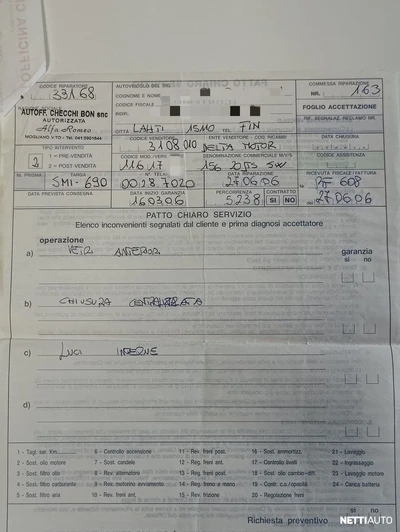 OFFICINA
CODICE RIPARATORE
33168
AUTOVEICOLO DEL SIG.
COGNOME E NOME
CODICE FISCALE
INDIR.
COMMESSA RIPARAZIONE
NR. 163
AUTOFF. CHECCHI BON snc
AUTORIZZATA
Alfa Romeo
MOGLIANO V.TO - Tel. 041.5901546
FOGLIO ACCETTAZIONE
RIF. SEGNALAZ. RECLAMO NR.
CITTÀ LAHTI 15110 TEL. FIN
TIPO INTERVENTO
1 = PRE-VENDITA
2 = POST-VENDITA
2
CODICE VENDITORE
3108 010
ENTE VENDITORE - COG. RICAMBI
DELTA MOTOR
DATA CHIUSURA
CODICE MOD./VERS.
DENOMINAZIONE COMMERCIALE M/V/S
156 20JTS SW
CODICE ASSISTENZA
NR. PRIMA
TARGA
SMI-690
N° TELAIO
0028.7020
DATA RIPARAZIONE
27.06.06
RICEVUTA FISCALE/FATTURA
608
DATA PREVISTA CONSEGNA
DATA INIZIO GARANZIA
16.03.06
PERCORRENZA
5238
CONTRATTO
SI NO
27.06.06
PATTO CHIARO SERVIZIO
Elenco inconvenienti segnalati dal cliente e prima diagnosi accettatore
operazione
garanzia
si no
a) VETRI ANTERIORI
b) CHIUSURA CENTRALIZZATA
c) LUCI INTERNE
d)
1 - Tagl. serv. Km 6 - Controllo accensione 11 - Rev. freni post. 16 - Sost. ammortizz. 21 - Lavaggio
2 - Sost. olio motore 7 - Sost. candele 12 - Reg. freni ant. 17 - Controllo livelli 22 - Ingrassaggio
3 - Sost. filtro olio 8 - Rev. alternatore 13 - Reg. freni post. 18 - Sost. olio cambio-diff. 23 - Lavaggio motore
4 - Sost. filtro carburante 9 - Rev. motorino avviamento 14 - Reg. freno a mano 19 - Contr. c.o./specifica 24 - Carica batteria
5 - Sost. filtro aria 10 - Rev. freni ant. 15 - Rev. frizione 20 - Registrazione freni
si no
Richiesta preventivo
NETTIAUTO